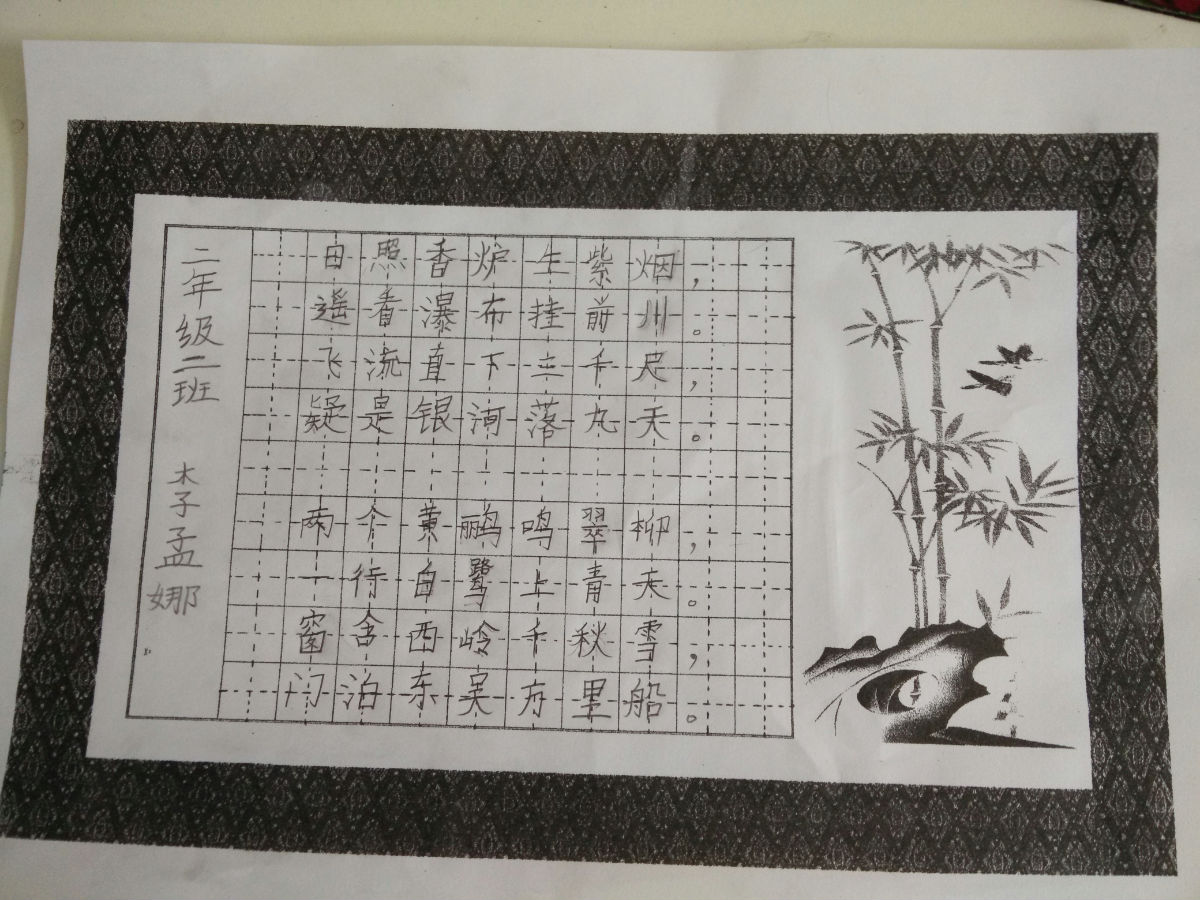 二年级二班 李孟娜
日照香炉生紫烟，
遥看瀑布挂前川。
飞流直下三千尺，
疑是银河落九天。
两个黄鹂鸣翠柳，
一行白鹭上青天。
窗含西岭千秋雪；
门泊东吴万里船。